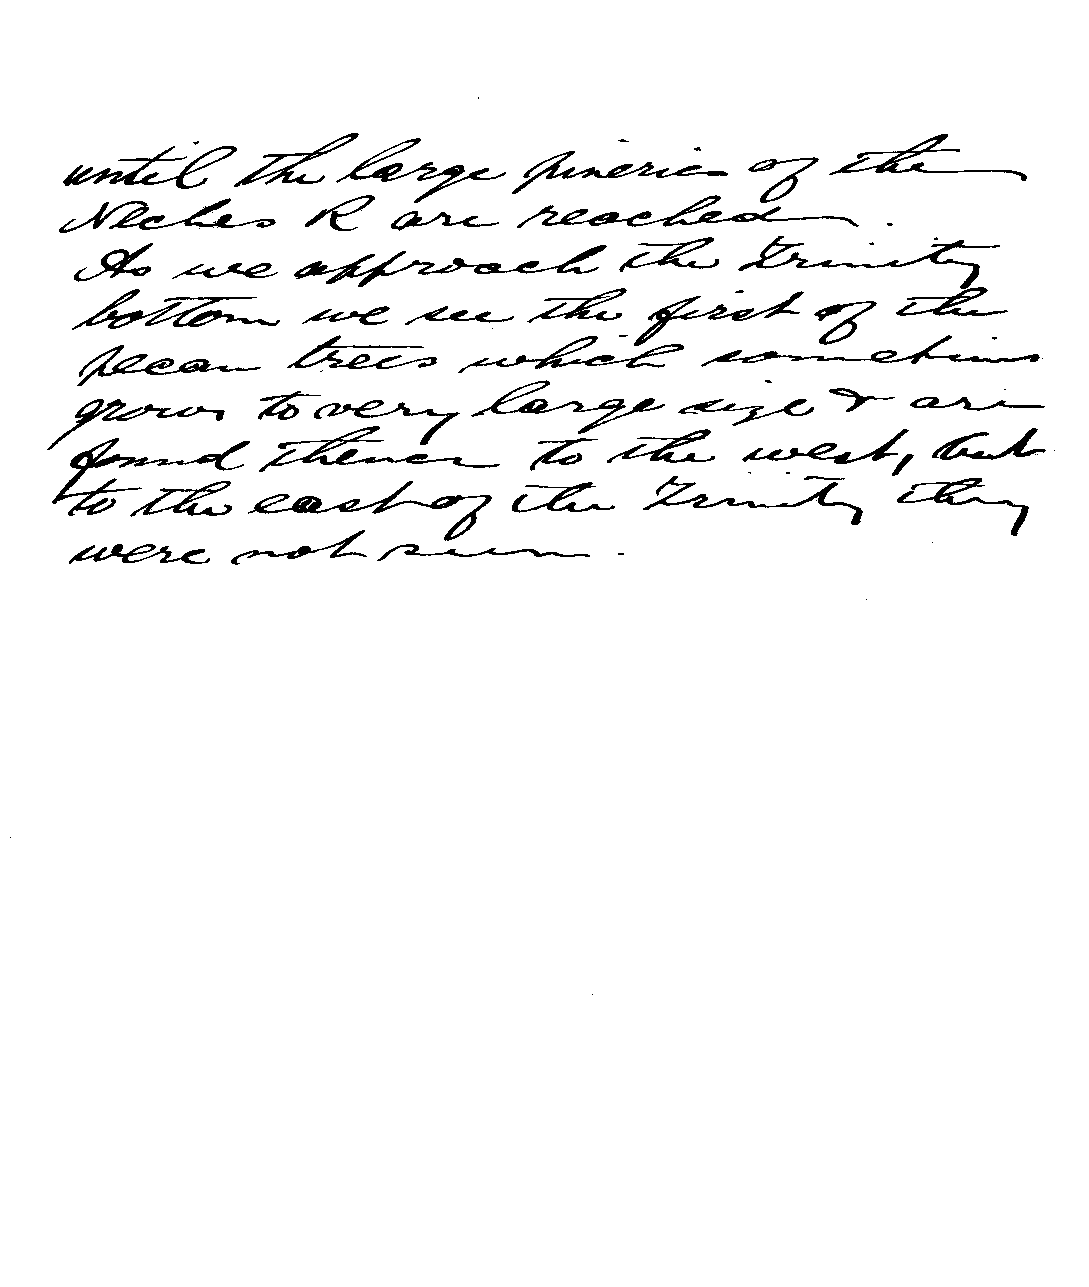 until the large pineries of the
Neches R are reached.
As we approach the Trinity
bottom we see the first of the
pecan trees which sometimes
grows to very large size & are
found thence to the west, but
to the east of the Trinity they
were not seen.